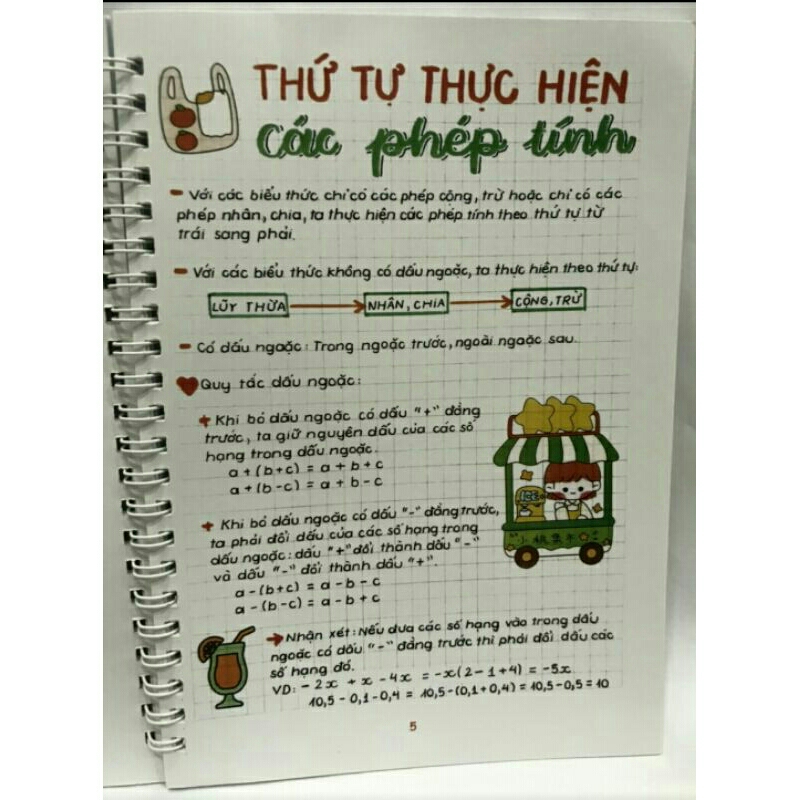 THỨ TỰ THỰC HIỆN
các phép tính
- Với các biểu thức chỉ có các phép cộng, trừ hoặc chỉ có các
phép nhân, chia, ta thực hiện các phép tính theo thứ tự từ
trái sang phải.
- Với các biểu thức không có dấu ngoặc, ta thực hiện theo thứ tự:
LŨY THỪA → NHÂN, CHIA → CỘNG, TRỪ
- Có dấu ngoặc: Trong ngoặc trước, ngoài ngoặc sau.
Quy tắc dấu ngoặc:
+ Khi bỏ dấu ngoặc có dấu "+" đằng
trước, ta giữ nguyên dấu của các số
hạng trong dấu ngoặc.
a + (b+c) = a + b + c
a + (b-c) = a + b - c
+ Khi bỏ dấu ngoặc có dấu "-" đằng trước,
ta phải đổi dấu của các số hạng trong
dấu ngoặc: dấu "+" đổi thành dấu "-"
và dấu "-" đổi thành dấu "+".
a - (b+c) = a - b - c
a - (b-c) = a - b + c
→ Nhận xét: Nếu đưa các số hạng vào trong dấu
ngoặc có dấu "-" đằng trước thì phải đổi dấu các
số hạng đó.
VD: - 2x + x - 4x = -x(2 - 1 + 4) = -5x
10,5 - 0,1 - 0,4 = 10,5 - (0,1 + 0,4) = 10,5 - 0,5 = 10
5